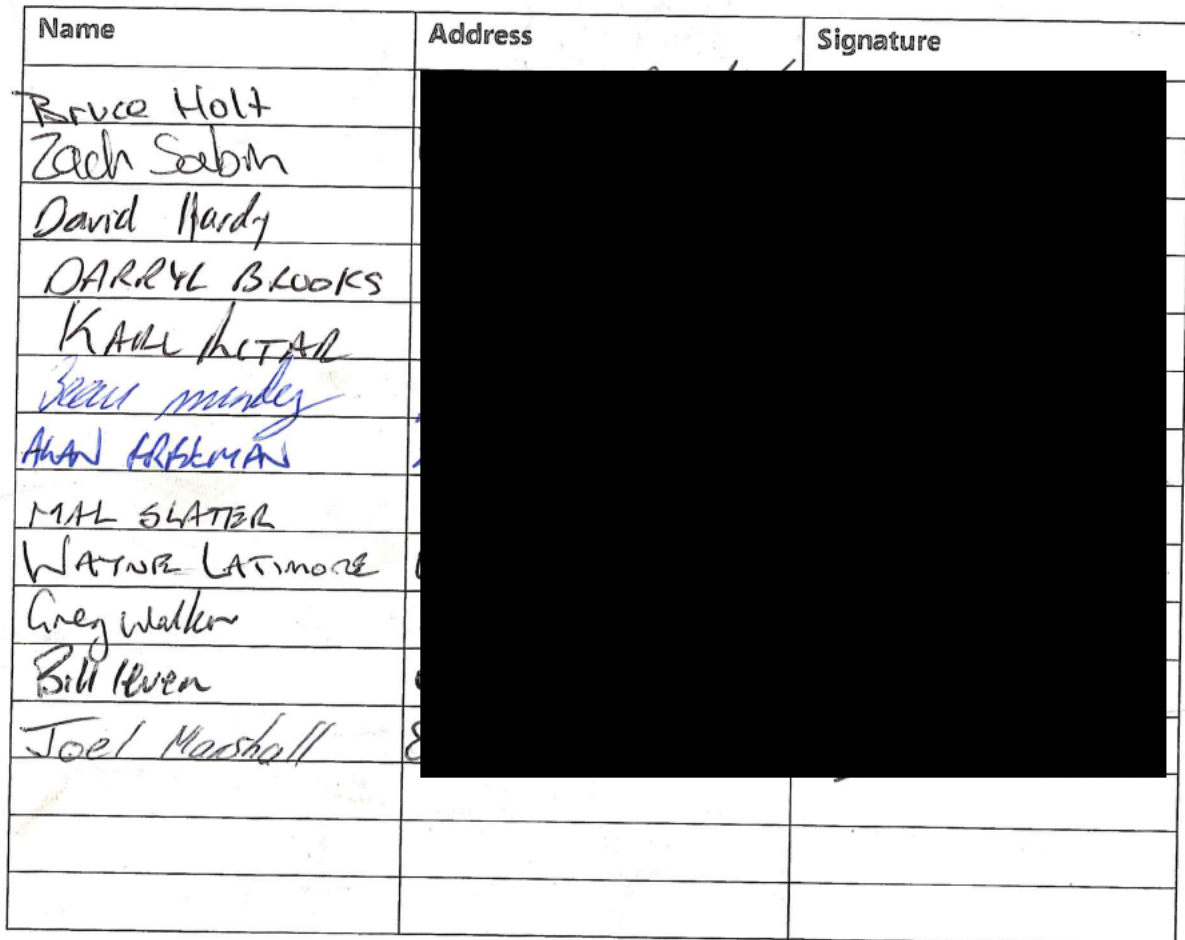 Name Address Signature
Bruce Holt
Zach Sabin
David Hardy
DARRYL BROOKS
KARL
Beau
ALAN
MAL SLATER
WAYNE LATIMORE
Greg Walker
Bill
Joel Marshall 8